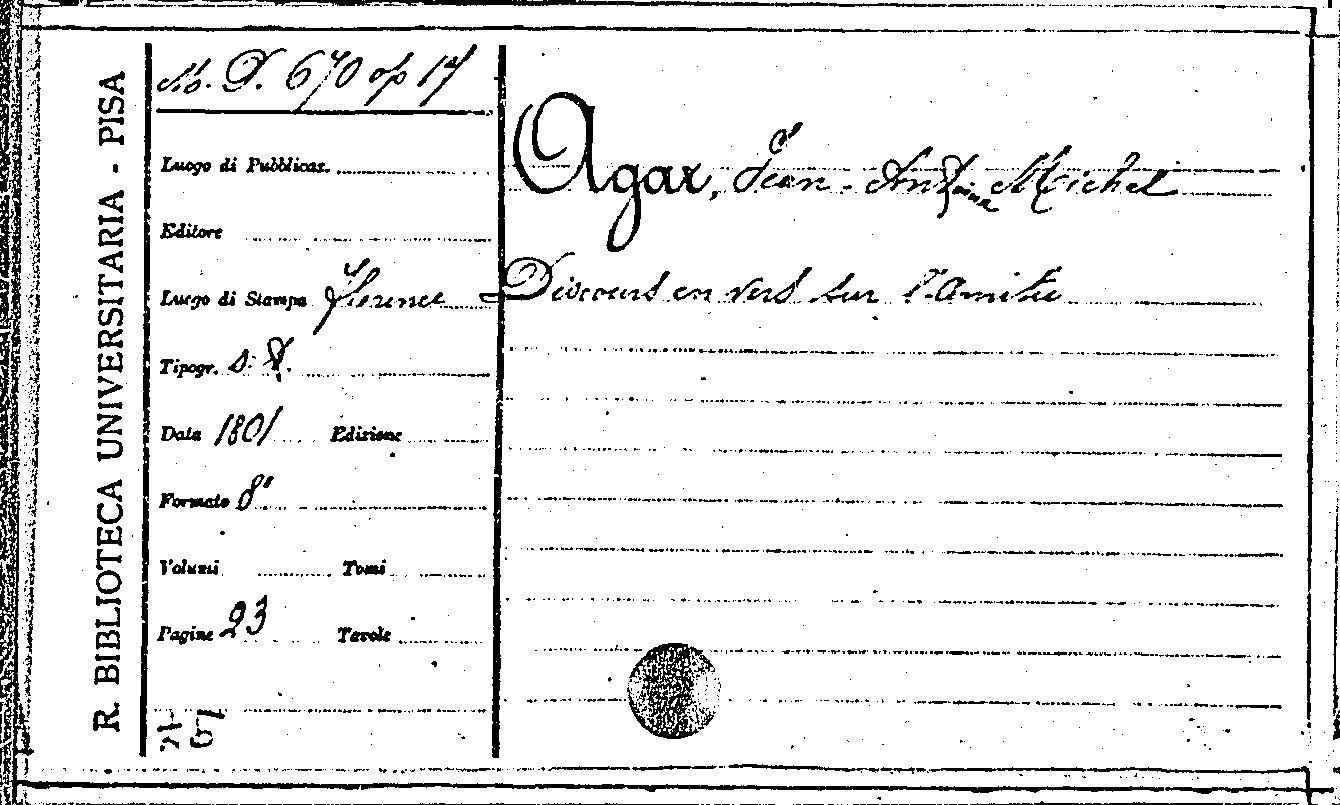 R. BIBLIOTECA UNIVERSITARIA - PISA
Mb. D. 670 op 17
Luogo di Pubblicaz.
Editore
Luogo di Stampa Florence
Tipogr. s. t.
Data 1801 Edizione
Formato 8°
Volumi Tomi
Pagine 23 Tavole
Agar, Jean-Antoine Michel
Discours en vers sur l'Amitié